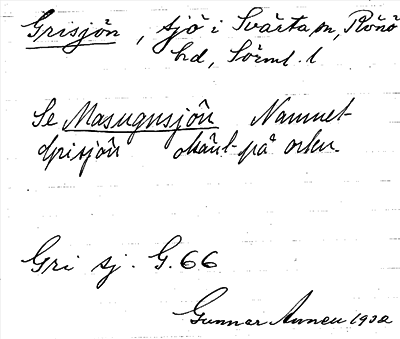 Grisjön, sjö i Svärta sn, Rönö
hd, Sörml. l
Se Masugnsjön Namnet
Grisjön okänt på orten.
Gri sj. G.66
Gunnar 1932